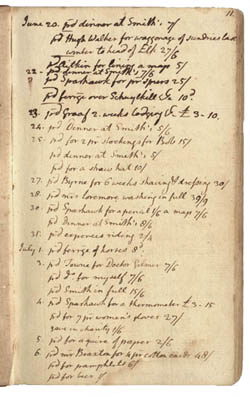 11
June 20. pd dinner at Smith's 7/
pd Hugh Walker for waggonage of sundries last
winter to head of Elk 27/6
pd Aitkin for lining a map 5/
22. pd dinner at Smith's 7/6
pd Sparhawk for pr spurs 25/
pd ferrge over Schuylkill &c 10d
23. pd Graaf 2. weeks lodging &c £3-10.
24. pd Dinner at Smith's 5/
25. pd for 2 pr stockings for Bob 15/
pd dinner at Smith's 5/
pd for a straw hat 10/
27. pd Byrne for 6 weeks shaving & dressing 30/
28. pd mrs Loremore washing in full 39/9
30. pd Sparhawk for a pencil 1/6 a map 7/6
pd dinner at Smith's 8/6
31. pd expences riding 2/4
July 1. pd ferrge of horses 8d
3. pd Towne for Doctor Gilmer 7/6
pd Do for myself 7/6
pd Smith in full 15/6
4. pd Sparhawk for a thermometer £3-15
pd for 7 pr women's gloves 27/
gave in charity 1/6
5. pd for a quire of paper 2/6
6. pd mr Braxton for 4 pr cotton cards 48/
pd for pamphlets 6/
pd for beer